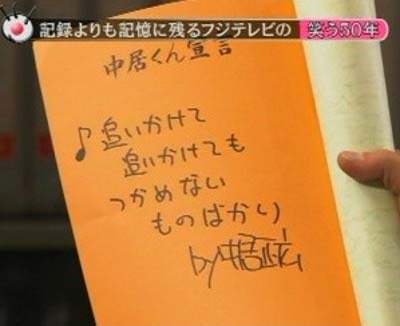 記録よりも記憶に残るフジテレビの 笑う50年
中居くん宣言
♪追いかけて
追いかけても
つかめない
ものばかり
by中居正広